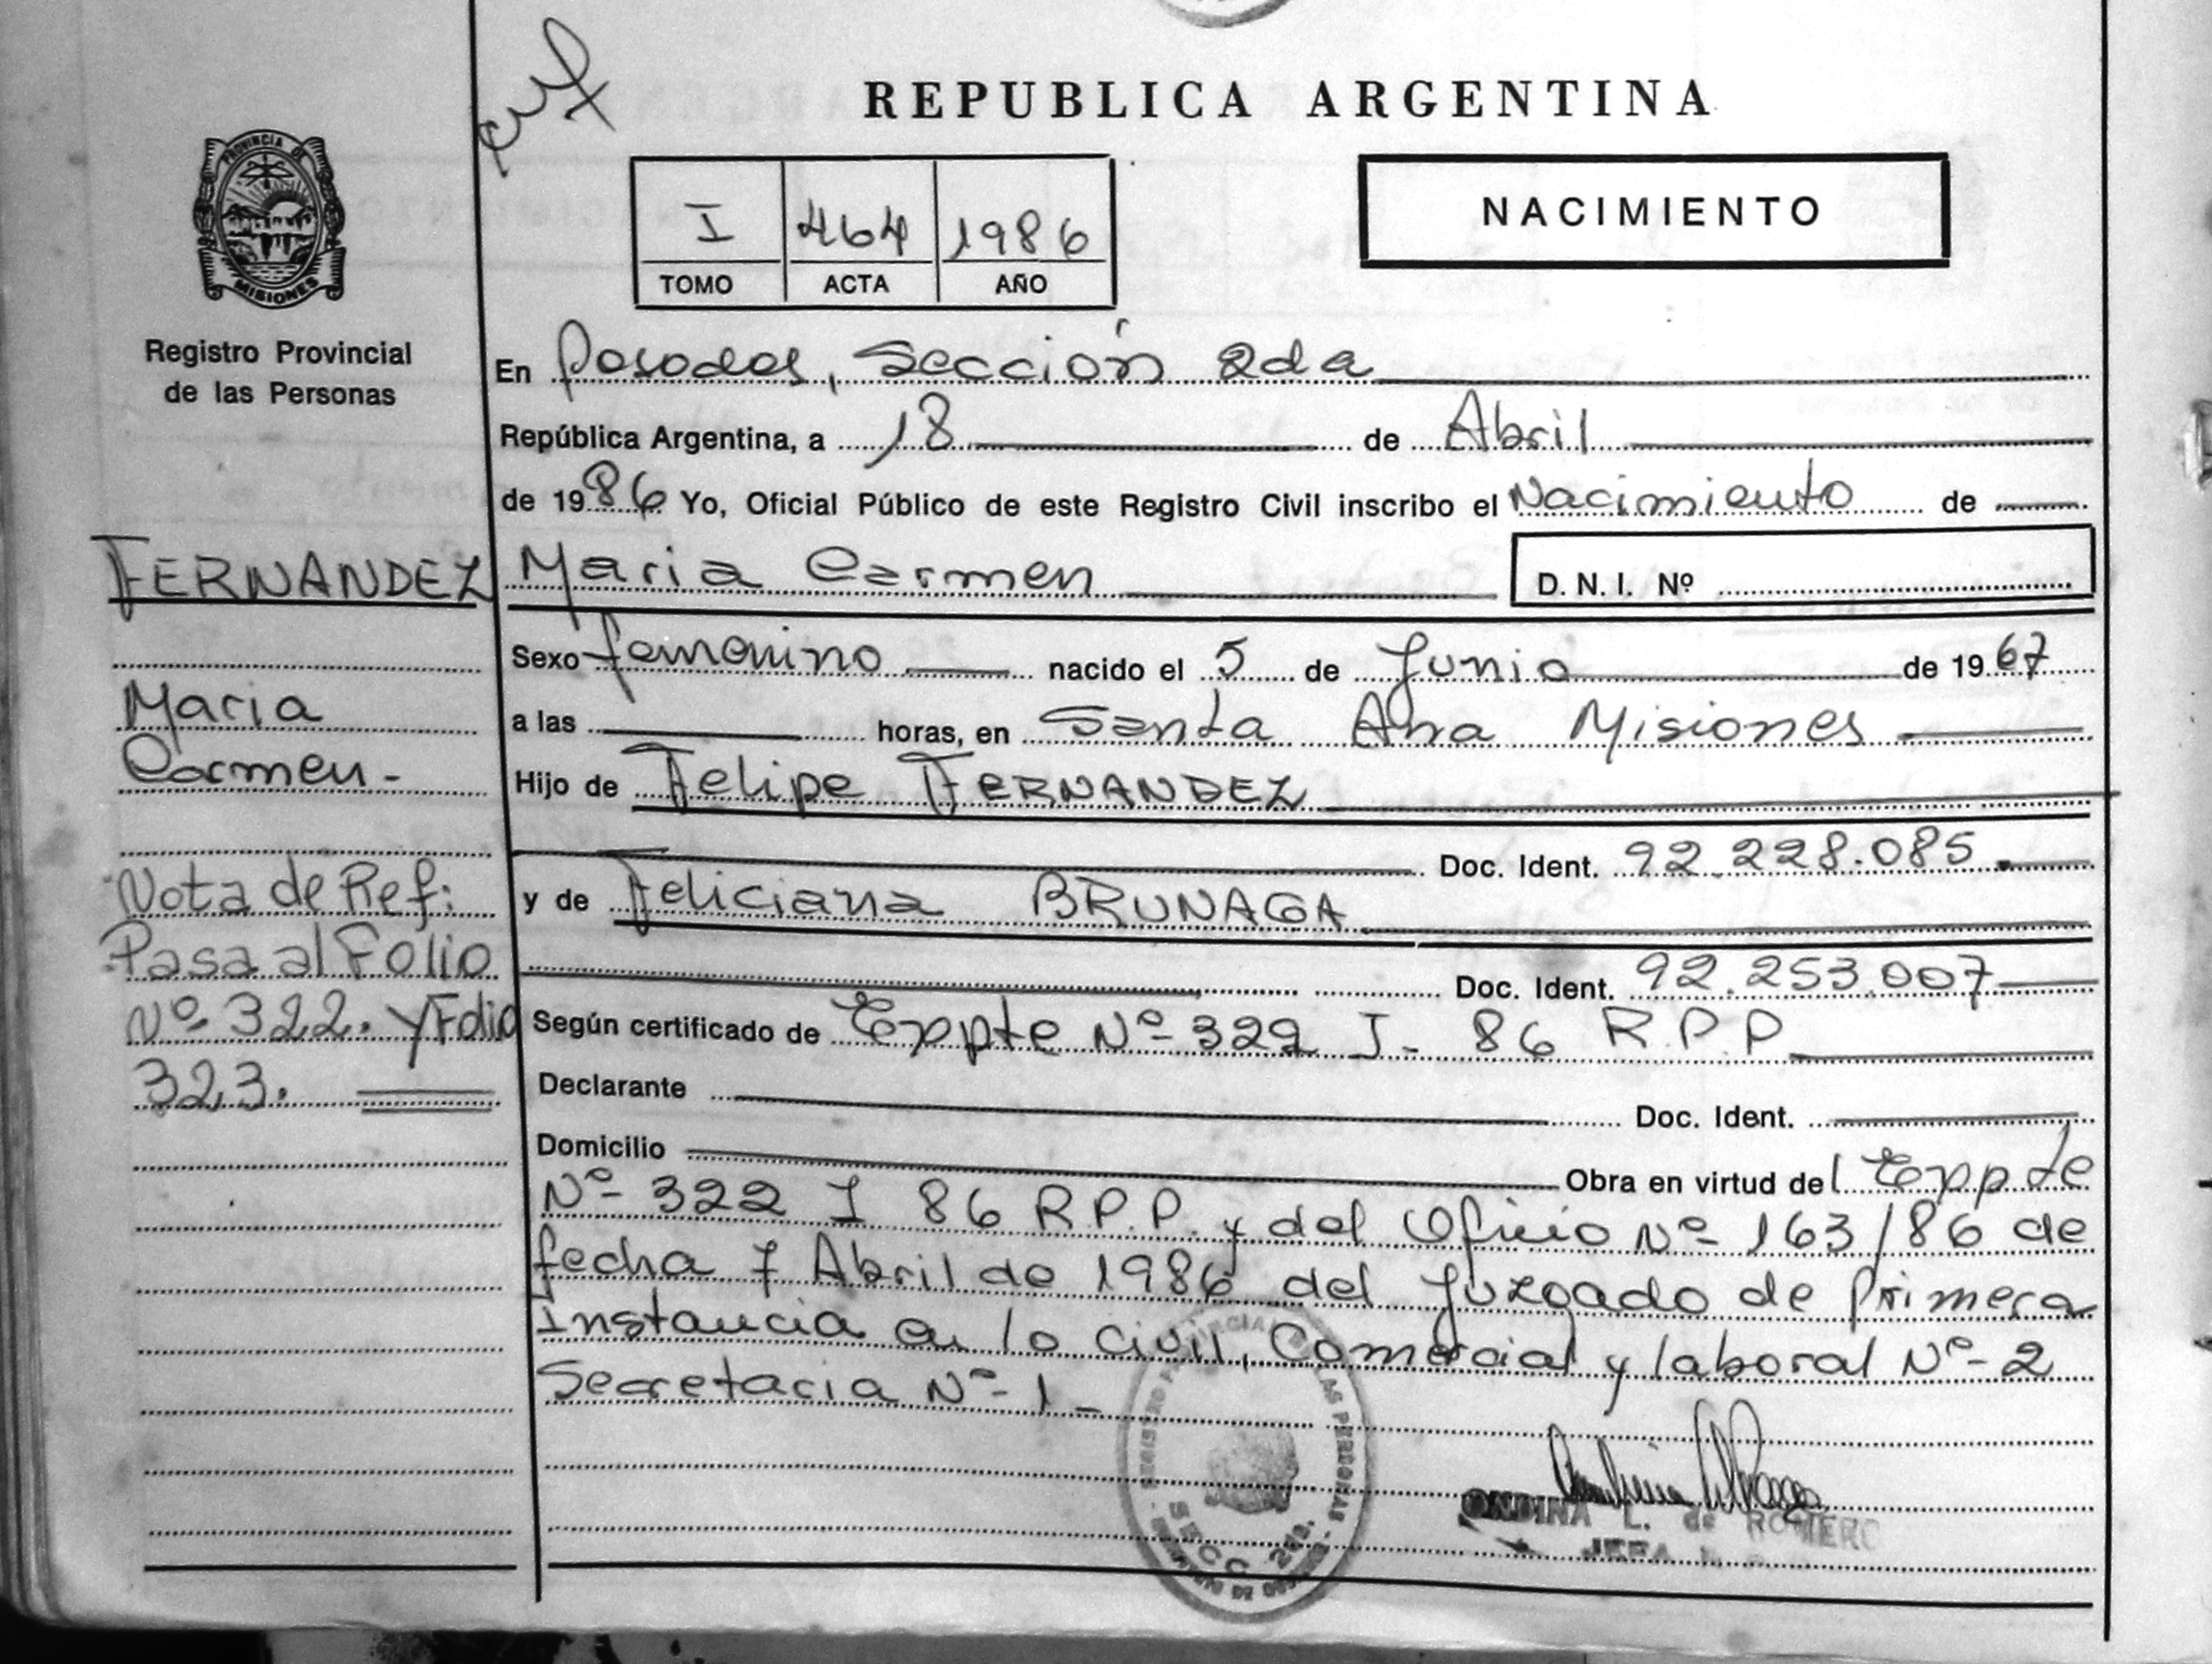 REPUBLICA ARGENTINA
PROVINCIA DE
MISIONES
Registro Provincial
de las Personas
I 464 1986
TOMO ACTA AÑO
NACIMIENTO
En Posadas, Sección 2da
República Argentina, a 18 de Abril
de 1986 Yo, Oficial Público de este Registro Civil inscribo el Nacimiento de
FERNANDEZ Maria Carmen D. N. I. Nº
Sexo femenino nacido el 5 de Junio de 1967
Maria
Carmen -
a las horas, en Santa Ana Misiones
Hijo de Felipe FERNANDEZ
Doc. Ident. 92.228.085
y de Feliciana BRUNAGA
Doc. Ident. 92.253.007
Nota de Ref:
Pasa al Folio
Nº 322. y Folio
323.
Según certificado de Exppte Nº 322 I - 86 R.P.P
Declarante Doc. Ident.
Domicilio Obra en virtud del Exppte
Nº 322 I 86 R.P.P. y del Oficio Nº 163/86 de
fecha 7 Abril de 1986 del Juzgado de Primera
Instancia en lo Civil, Comercial y laboral Nº 2
Secretaria Nº 1 -
SECC 2da.
ONDINA L. de ROMERO
JEFA